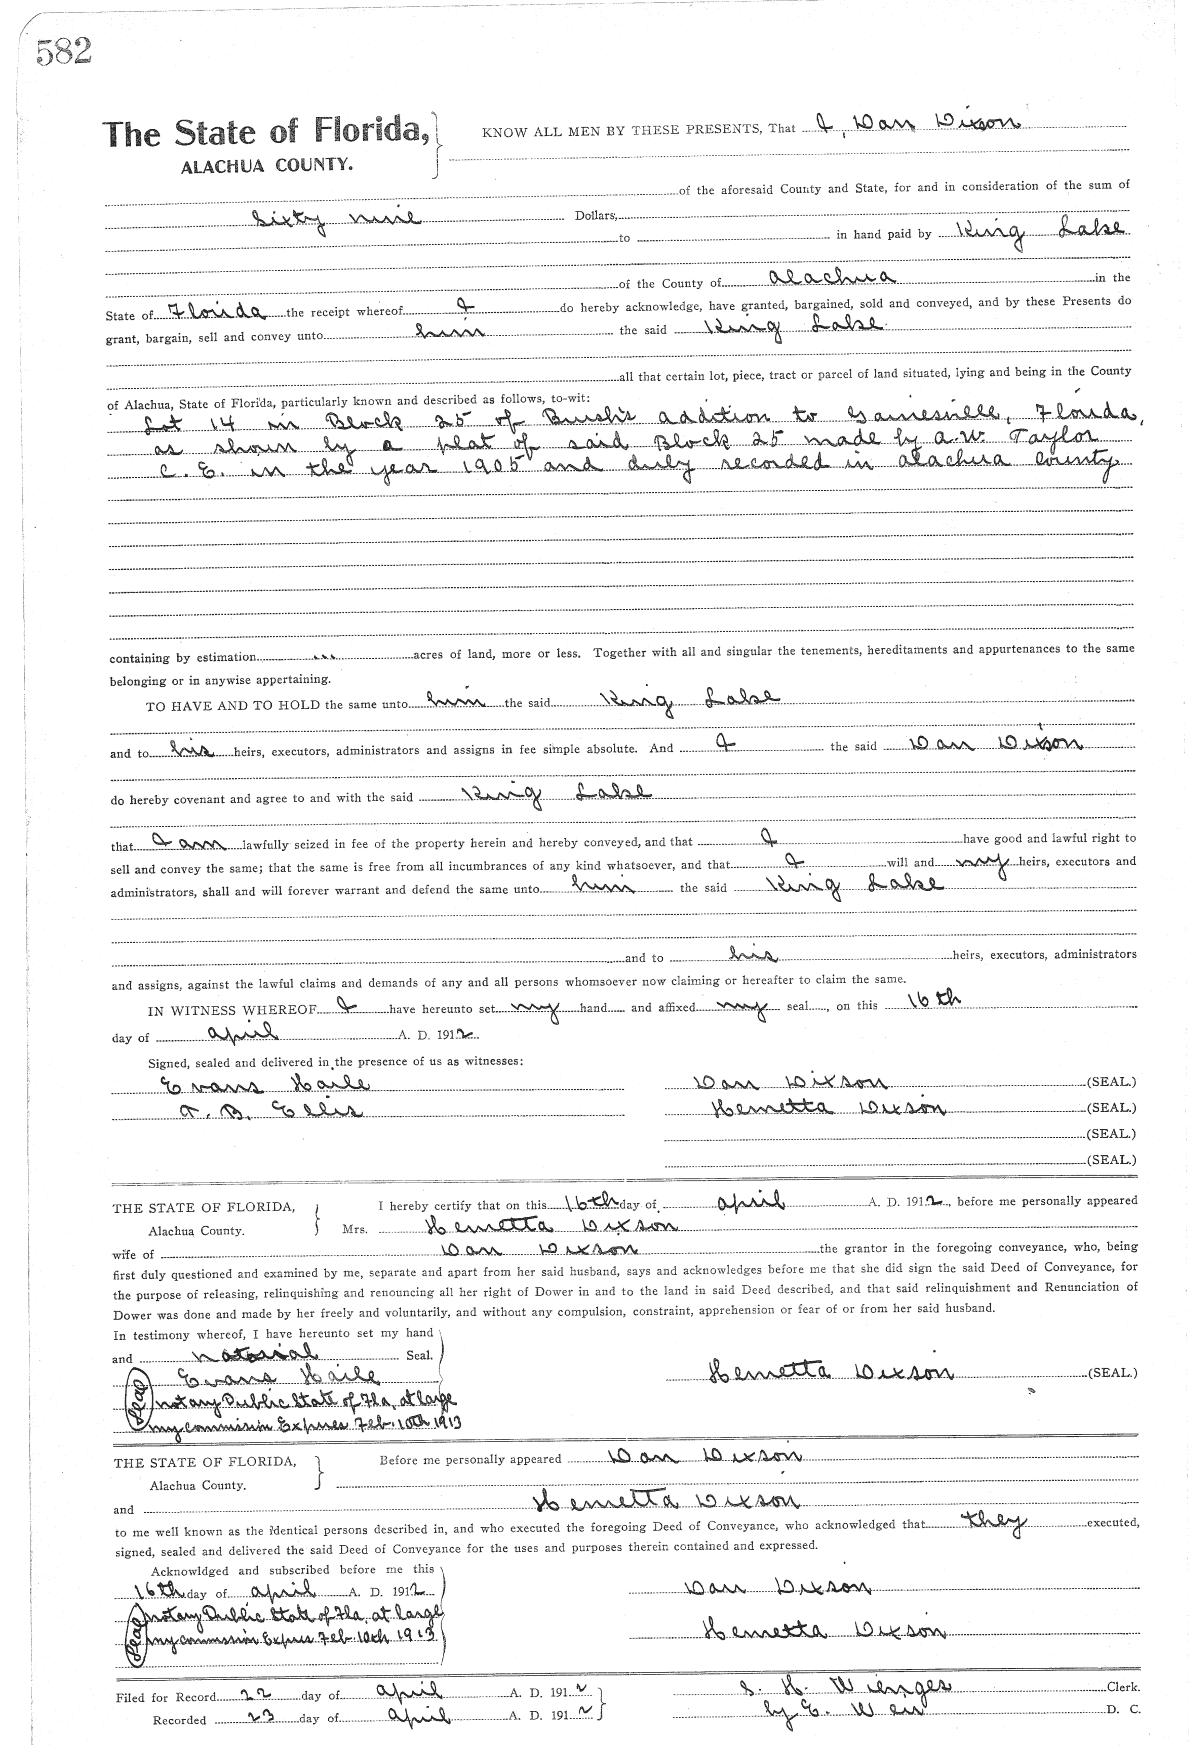 582
The State of Florida, KNOW ALL MEN BY THESE PRESENTS, That I, Dan Dixon
ALACHUA COUNTY.
of the aforesaid County and State, for and in consideration of the sum of
Sixty nine Dollars,
to in hand paid by King Lake
of the County of Alachua in the
State of Florida the receipt whereof I do hereby acknowledge, have granted, bargained, sold and conveyed, and by these Presents do
grant, bargain, sell and convey unto him the said King Lake
all that certain lot, piece, tract or parcel of land situated, lying and being in the County
of Alachua, State of Florida, particularly known and described as follows, to-wit:
Lot 14 in Block 25 of Bush's addition to Gainesville, Florida,
as shown by a plat of said Block 25 made by A.W. Taylor
C. E. in the year 1905 and duly recorded in Alachua County
containing by estimation acres of land, more or less. Together with all and singular the tenements, hereditaments and appurtenances to the same
belonging or in anywise appertaining.
TO HAVE AND TO HOLD the same unto him the said King Lake
and to his heirs, executors, administrators and assigns in fee simple absolute. And I the said Dan Dixon
do hereby covenant and agree to and with the said King Lake
that I am lawfully seized in fee of the property herein and hereby conveyed, and that I have good and lawful right to
sell and convey the same; that the same is free from all incumbrances of any kind whatsoever, and that I will and my heirs, executors and
administrators, shall and will forever warrant and defend the same unto him the said King Lake
and to his heirs, executors, administrators
and assigns, against the lawful claims and demands of any and all persons whomsoever now claiming or hereafter to claim the same.
IN WITNESS WHEREOF I have hereunto set my hand and affixed my seal, on this 16th
day of April A. D. 1912
Signed, sealed and delivered in the presence of us as witnesses:
Evans Haile Dan Dixson (SEAL.)
T. B. Ellis Henretta Dixson (SEAL.)
(SEAL.)
(SEAL.)
THE STATE OF FLORIDA, I hereby certify that on this 16th day of April A. D. 1912, before me personally appeared
Alachua County. Mrs. Henretta Dixson
wife of Dan Dixson the grantor in the foregoing conveyance, who, being
first duly questioned and examined by me, separate and apart from her said husband, says and acknowledges before me that she did sign the said Deed of Conveyance, for
the purpose of releasing, relinquishing and renouncing all her right of Dower in and to the land in said Deed described, and that said relinquishment and Renunciation of
Dower was done and made by her freely and voluntarily, and without any compulsion, constraint, apprehension or fear of or from her said husband.
In testimony whereof, I have hereunto set my hand
and notorial Seal.
Evans Haile Henretta Dixson (SEAL)
Seal Notary Public State of Fla, at large
my commission Expires Feb. 10th 1913
THE STATE OF FLORIDA, Before me personally appeared Dan Dixson
Alachua County.
and Henretta Dixson
to me well known as the identical persons described in, and who executed the foregoing Deed of Conveyance, who acknowledged that they executed,
signed, sealed and delivered the said Deed of Conveyance for the uses and purposes therein contained and expressed.
Acknowldged and subscribed before me this
16th day of April A. D. 1912 Dan Dixson
Seal Notary Public State of Fla, at large
my commission Expires Feb 10th 1913 Henretta Dixson
Filed for Record 22 day of April A. D. 1912 S. H. Wienges Clerk.
Recorded 23 day of April A. D. 1912 by E. D. C.